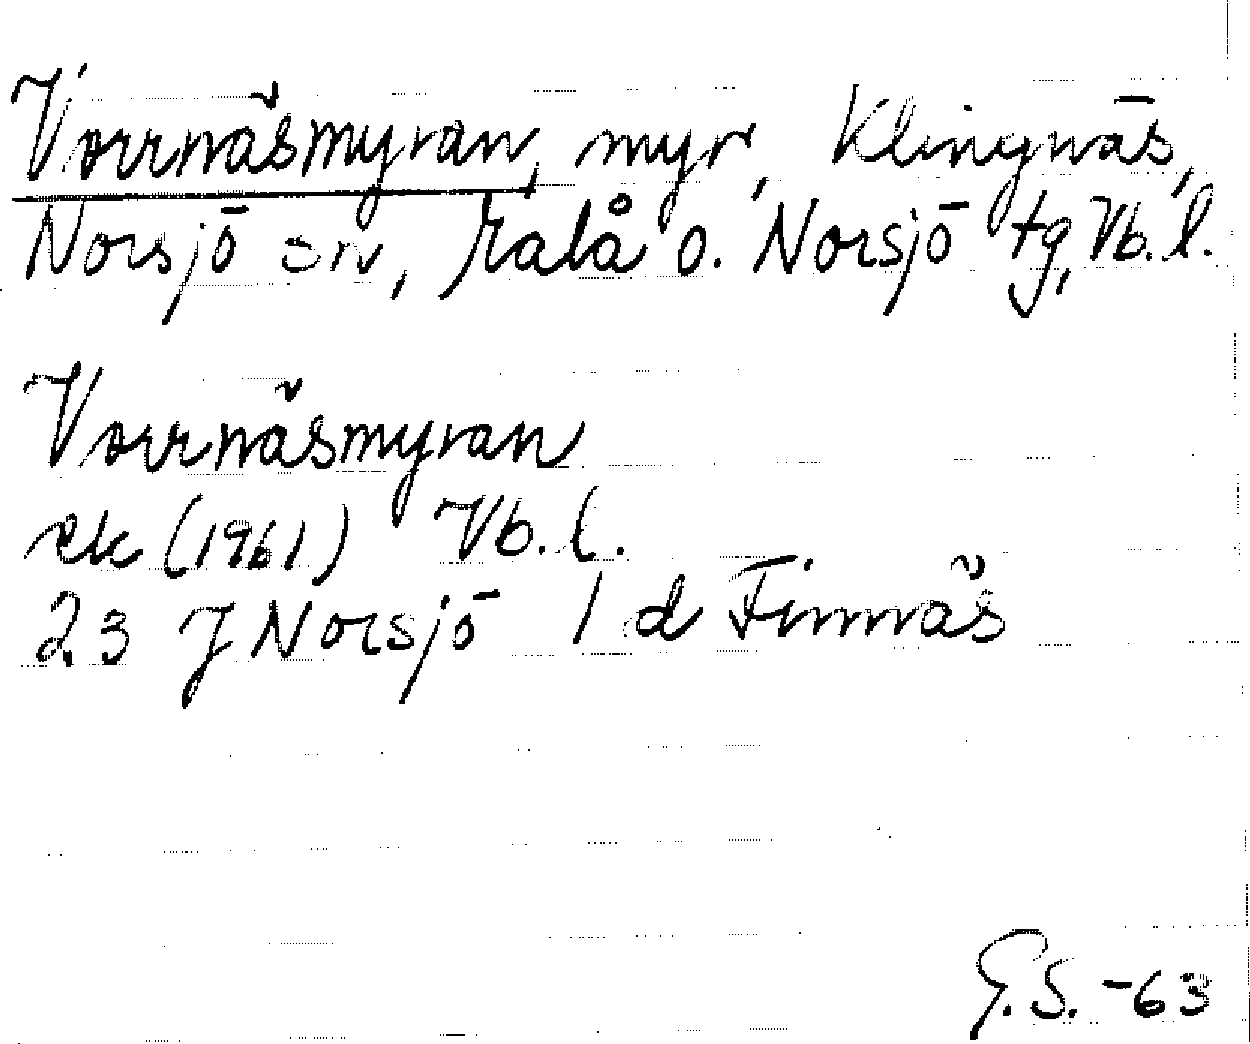 Vorrnäsmyran, myr, Klingnäs,
Norsjö sn, Malå o. Norsjö tg, Vb. l.
Vorrnäsmyran
ek (1961) Vb. l.
23 J Norsjö 1 d Finnäs
G.S. -63